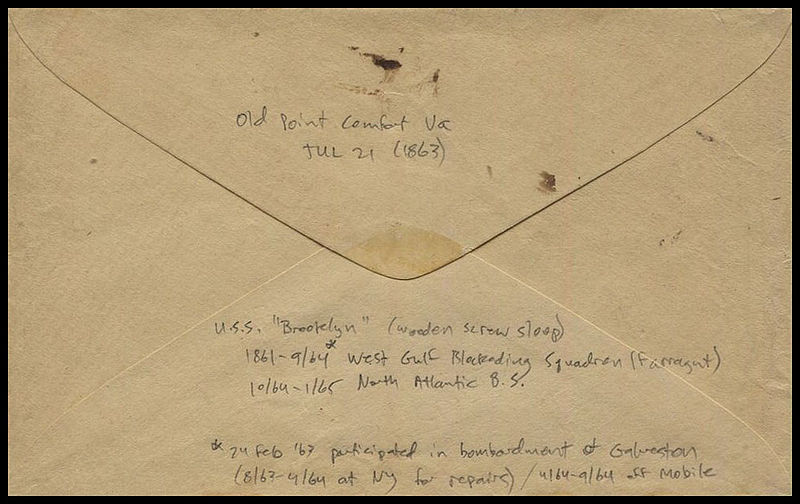 Old Point Comfort Va
JUL 21 (1863)
U.S.S. "Brooklyn" (wooden screw sloop)
1861-9/64* West Gulf Blockading Squadron (Farragut)
10/64-1/65 North Atlantic B.S.
* 24 Feb '63 participated in bombardment of Galveston
(8/63-4/64 at NY for repairs) / 4/64-9/64 off Mobile